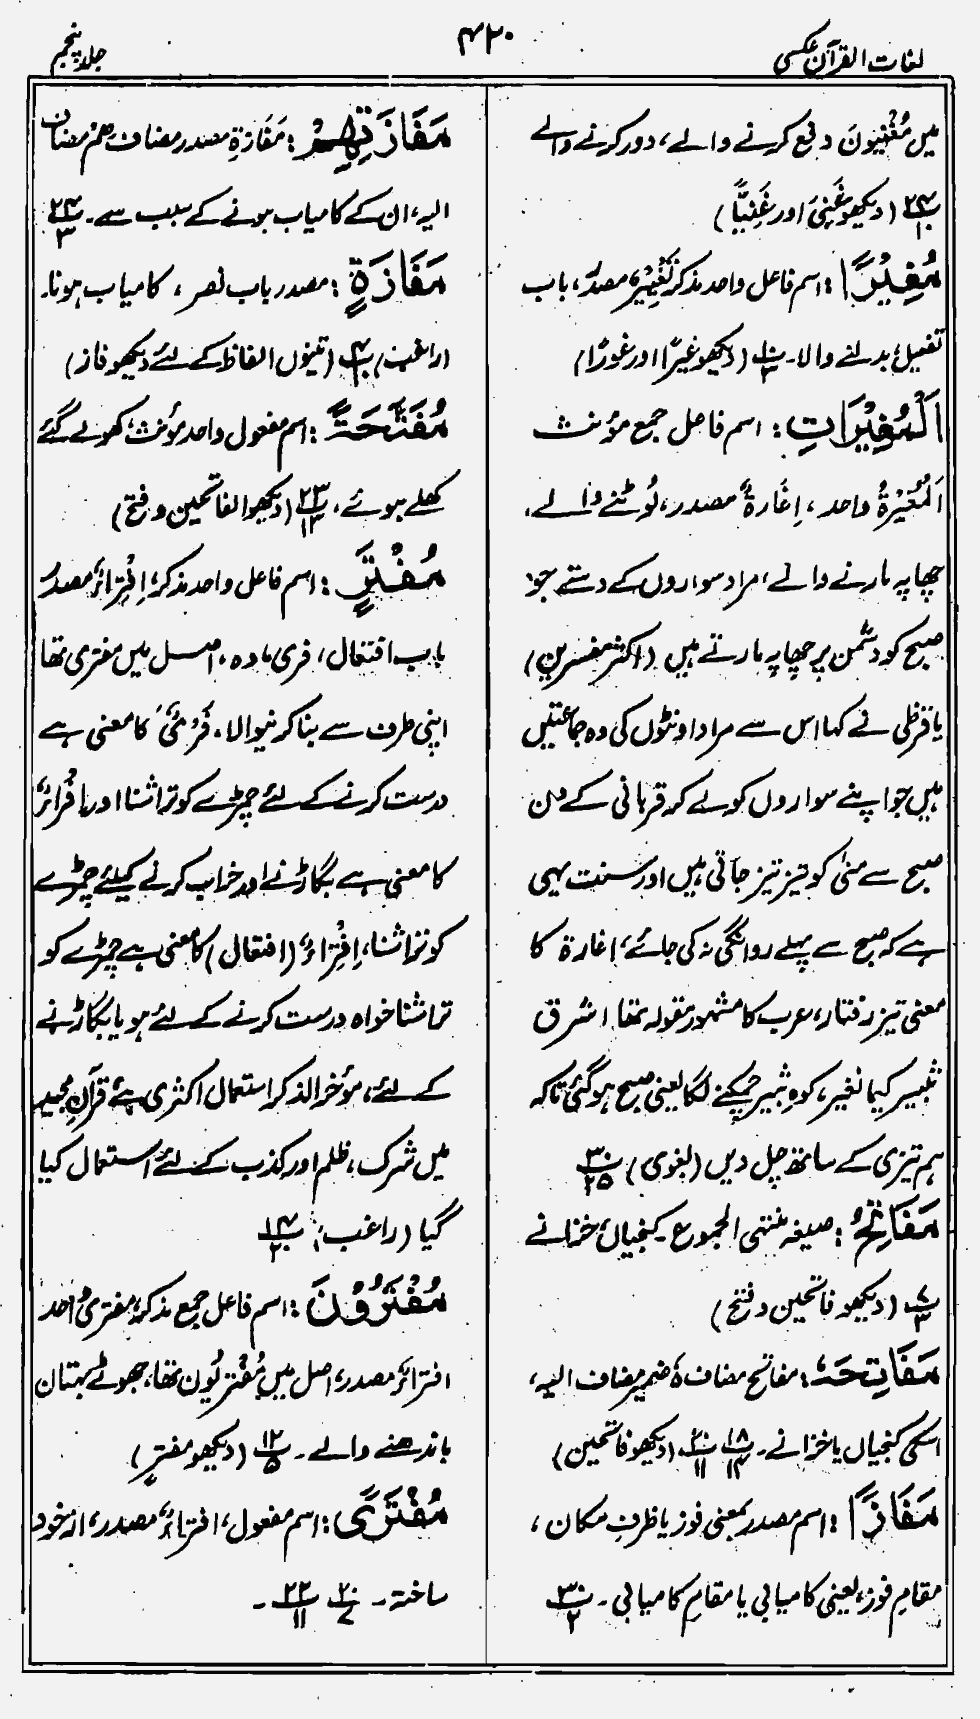 لغات القرآن عکسی
۴۲۰
جلد پنجم
میں مُغْنِیُونَ دفع کرنے والے، دور کرنے والے
(دیکھو غَنِیَ اور غَنِیًّا)
مُغِیْرًا : اسم فاعل واحد مذکر تَغْیِیْرٌ مصدر، باب
تفعیل، بدلنے والا۔ ۱۰/۳ (دیکھو غیرًا اور غورًا)
اَلْمُغِیْرَاتِ : اسم فاعل جمع مؤنث
اَلْمُغِیْرَۃُ واحد، اِغَارَۃٌ مصدر، لُوٹنے والے،
چھاپہ مارنے والے، مراد سواروں کے دستے جو
صبح کو دشمن پر چھاپہ مارتے ہیں (اکثر مفسرین)
یا قرظی نے کہا اس سے مراد اونٹوں کی وہ جماعتیں
ہیں جو اپنے سواروں کو لے کر قربانی کے دن
صبح سے منیٰ کو تیز تیز جاتی ہیں اور سنت یہی
ہے کہ صبح سے پہلے روانگی نہ کی جائے، اغارۃ کا
معنی تیز رفتار، عرب کا مشہور مقولہ تھا اشرق
ثبیر کیما نغیر، کوہِ ثبیر چمکنے لگا یعنی صبح ہو گئی تاکہ
ہم تیزی کے ساتھ چل دیں (بغوی) ۳۰/۲۵
مَفَاتِحُ : صیغہ منتہی الجموع۔ کنجیاں، خزانے
۷/۱۳ (دیکھو فاتحین و فتح)
مَفَاتِحَہٗ : مفاتح مضاف ہٗ ضمیر مضاف الیہ،
اسکی کنجیاں یا خزانے۔ ۱۸/۱۴ ۲۰/۱۱ (دیکھو فاتحین)
مَفَازًا : اسم مصدر بمعنی فوز یا ظرفِ مکان،
مقامِ فوز، یعنی کامیابی یا مقامِ کامیابی۔ ۳۰/۲
مَفَازَتِهِمْ : مَفَازَۃِ مصدر مضاف ھِمْ مضاف
الیہ، ان کے کامیاب ہونے کے سبب سے۔ ۲۴/۳
مَفَازَۃٍ : مصدر باب نصر، کامیاب ہونا۔
(راغب) ۴/۱۰ (تینوں الفاظ کے لئے دیکھو فاز)
مُفَتَّحَۃً : اسم مفعول واحد مؤنث، کھولے گئے
کھلے ہوئے، ۲۳/۱۳ (دیکھو الفاتحین و فتح)
مُفْتَرٍ : اسم فاعل واحد مذکر، اِفْتِرَاءٌ مصدر
باب افتعال، فری مادہ، اصل میں مفتری تھا
اپنی طرف سے بنا کر نیوالا۔ فَرْیٌ کا معنی ہے
درست کرنے کے لئے چمڑے کو تراشنا اور اِفْرَاءٌ
کا معنی ہے بگاڑنے اور خراب کرنے کیلئے چمڑے
کو تراشنا، اِفْتِرَاءٌ (افتعال) کا معنی ہے چمڑے کو
تراشنا خواہ درست کرنے کے لئے ہو یا بگاڑنے
کے لئے، مؤخر الذکر استعمال اکثری ہے، قرآنِ مجید
میں شرک، ظلم اور کذب کے لئے استعمال کیا
گیا (راغب) ۱۴/۲۰
مُفْتَرُوْنَ : اسم فاعل جمع مذکر، مفتری واحد
افتراءٌ مصدر، اصل میں مُفْتَرِیُوْنَ تھا، جھوٹے بہتان
باندھنے والے۔ ۱۲/۵ (دیکھو مفترٍ)
مُفْتَرًی : اسم مفعول، افتراءٌ مصدر، از خود
ساختہ۔ ۲۰/۷ ۲۲/۱۱۔